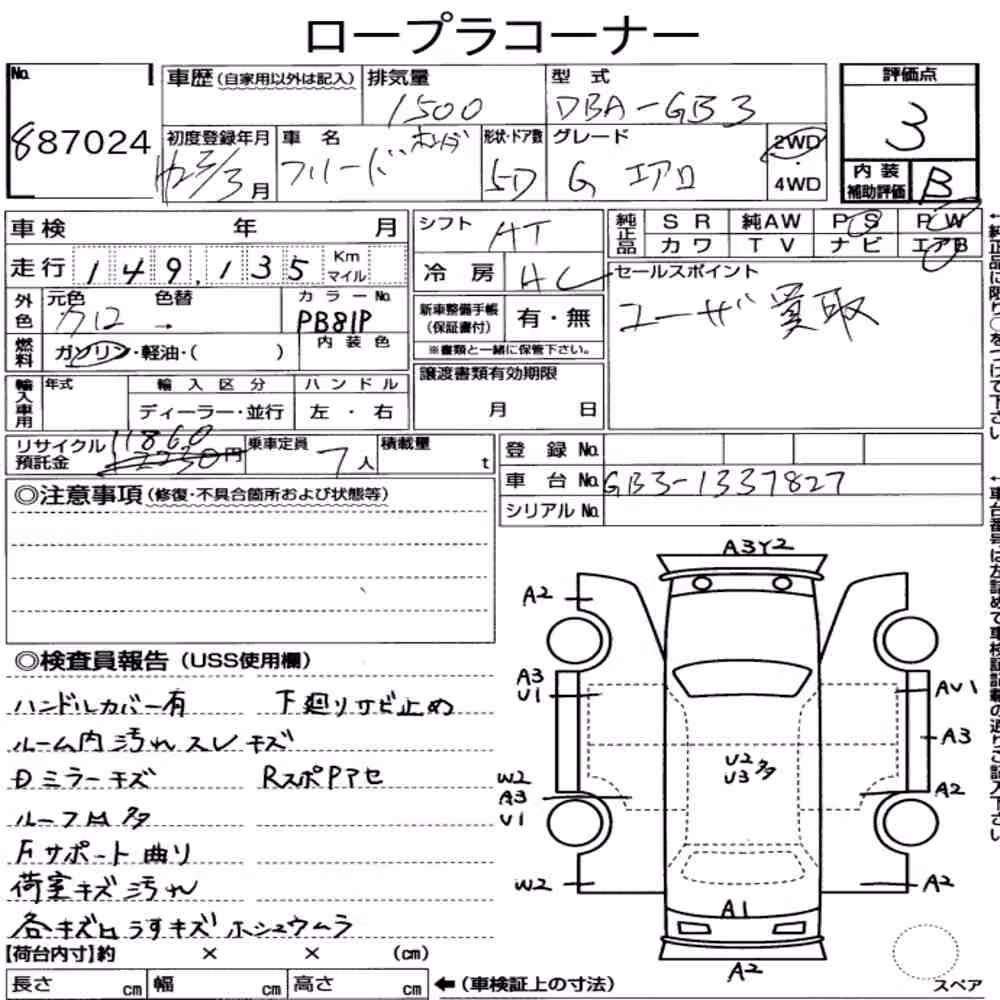 ロープラコーナー
No.
887024
車歴(自家用以外は記入) 排気量 型式
1500 DBA-GB3
初度登録年月 車名 形状・ドア数 グレード
3月 フリード ホンダ 5D G エアロ
2WD
・
4WD
評価点
3
内装
補助評価 B
車検 年 月
走行 149,135 Km マイル
外色 元色 色替 カラーNo.
→ PB81P
内装色
燃料 ガソリン・軽油・( )
輸入車用 年式 輸入区分 ハンドル
ディーラー・並行 左・右
リサイクル預託金 11860 2230円 乗車定員 7人 積載量 t
シフト AT
冷房 AC
新車整備手帳
(保証書付) 有・無
※書類と一緒に保管下さい。
譲渡書類有効期限
月 日
純正品 SR 純AW PS PW
カワ TV ナビ エアB
セールスポイント
ユーザー買取
登録No.
車台No. GB3-1337827
シリアルNo.
←純正品に限り○をつけて下さい
←車台番号は左詰めで車検証記載の通りご記入下さい
◎注意事項(修復・不具合箇所および状態等)
◎検査員報告(USS使用欄)
ハンドルカバー有 下廻りサビ止め
ルーム内汚れスレキズ
Dミラーキズ RスポPアセ
ルーフ凹多
Fサポート曲り
荷室キズ汚れ
各キズ凹うすキズホシュウムラ
【荷台内寸】約 × × (cm)
長さ cm 幅 cm 高さ cm ←(車検証上の寸法)
A3Y2
A2
A3
U1
AU1
A3
U2
U3多
W2
A3
U1
A2
W2
A2
A1
A2
スペア